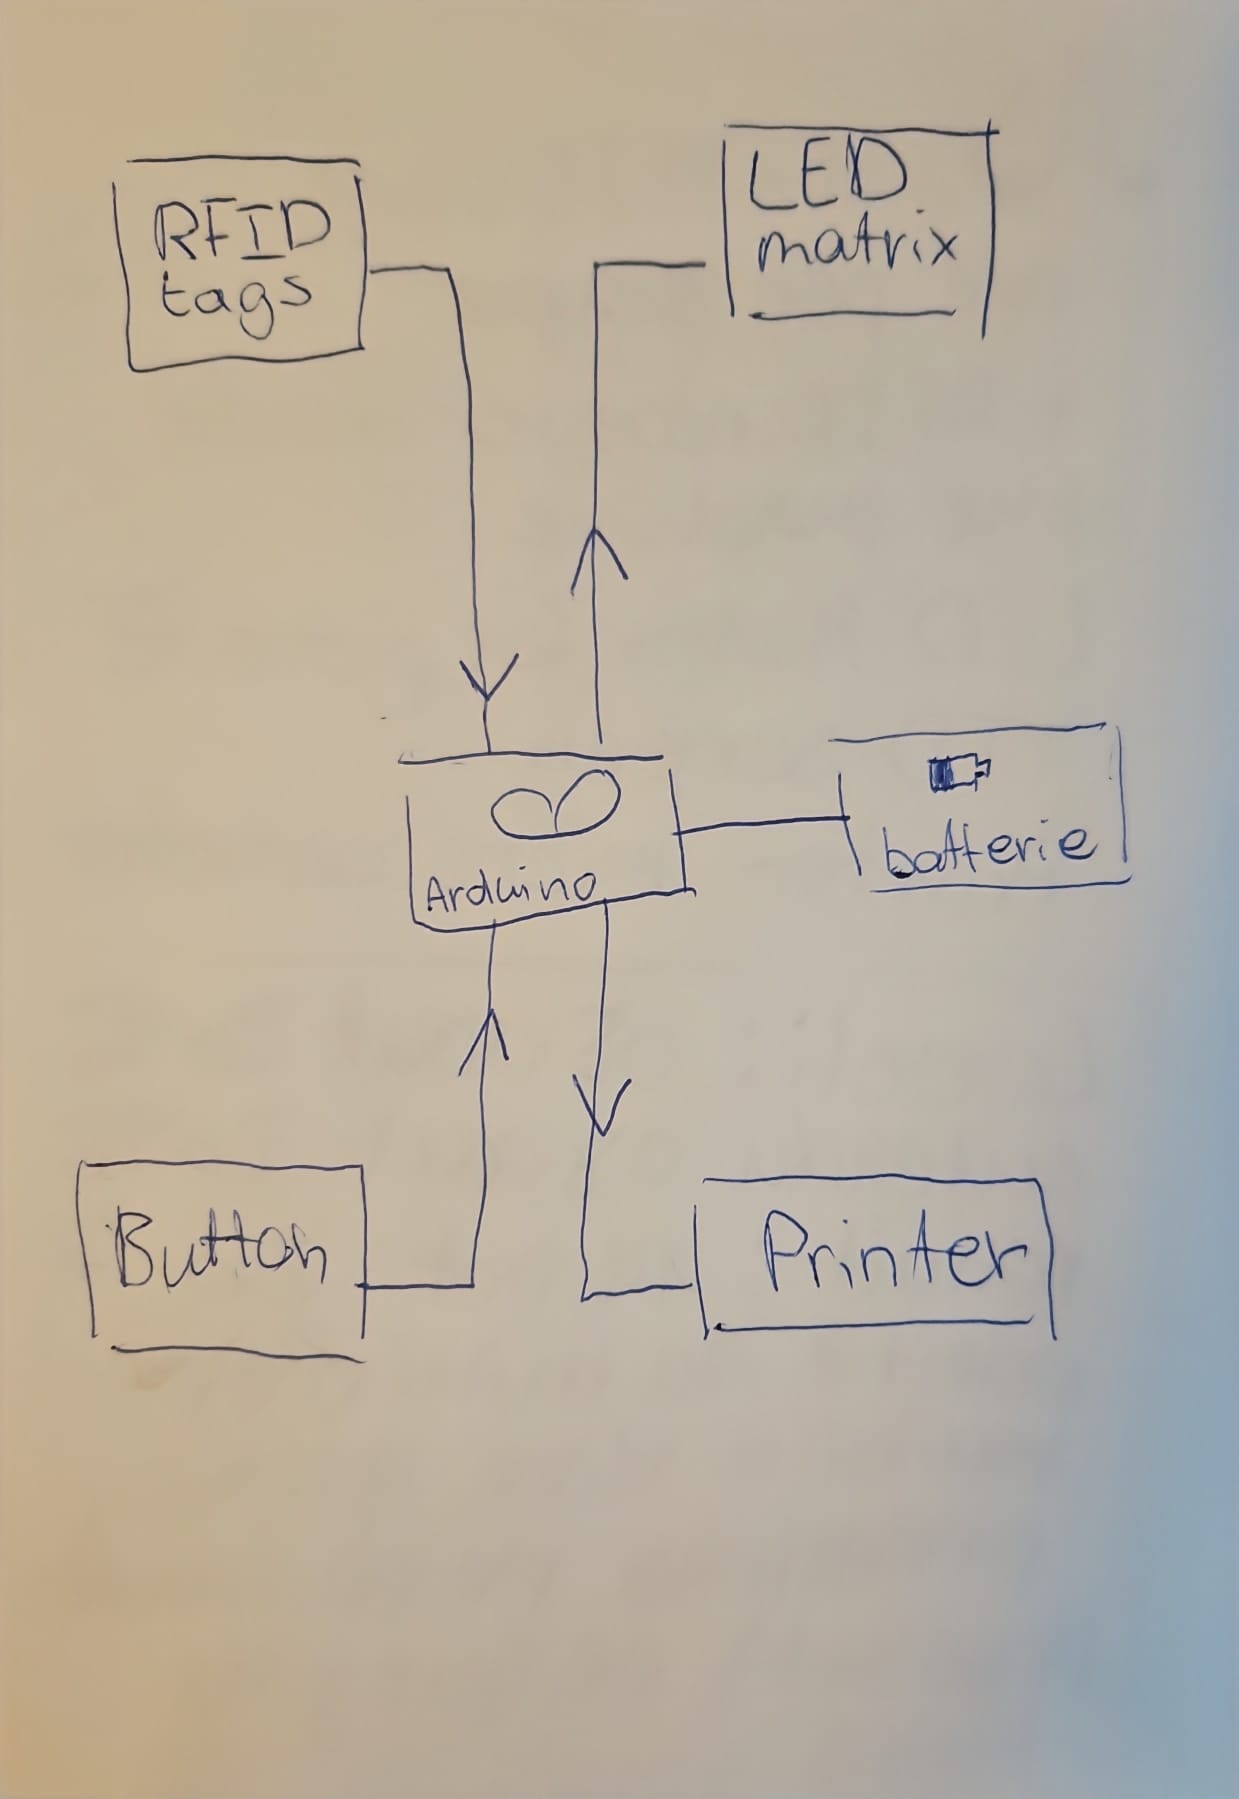 RFID
tags
LED
matrix
Arduino
batterie
Button
Printer